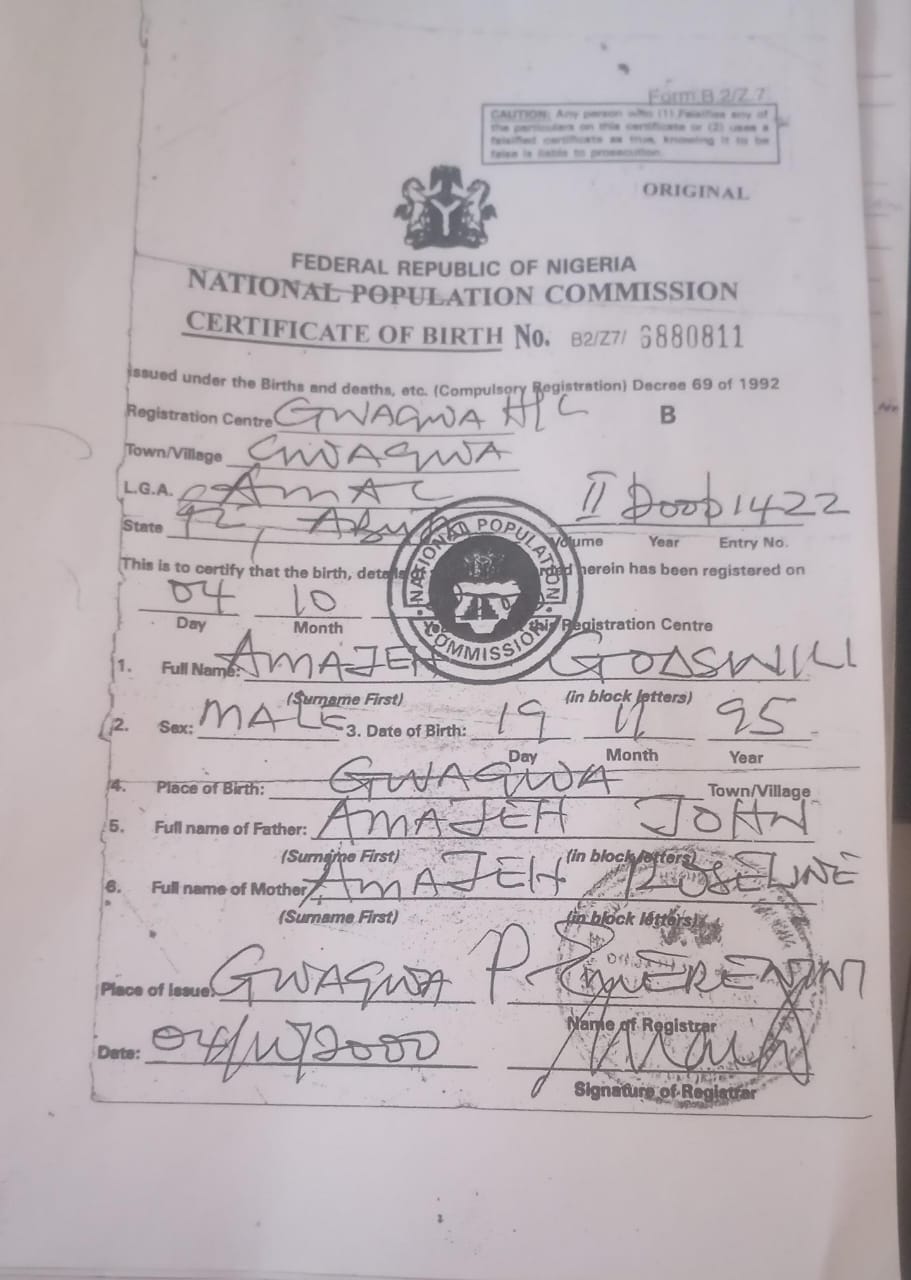 Form B.2/Z.7
CAUTION: Any person who (1) Falsifies any of
the particulars on this certificate or (2) uses a
falsified certificate as true, knowing it to be
false is liable to prosecution.
ORIGINAL
FEDERAL REPUBLIC OF NIGERIA
NATIONAL POPULATION COMMISSION
CERTIFICATE OF BIRTH No. B2/Z7/ 6880811
Issued under the Births and deaths, etc. (Compulsory Registration) Decree 69 of 1992
Registration Centre GWAGWA H/C B
Town/Village GWAGWA
L.G.A. AMAC II 1422
State ABUJA
Volume Year Entry No.
NATIONAL POPULATION COMMISSION
This is to certify that the birth, details herein has been registered on
04 10
Day Month this Registration Centre
1. Full Name: AMAJEH GODSWILL
(Surname First) (in block letters)
2. Sex: MALE 3. Date of Birth: 19 11 95
Day Month Year
4. Place of Birth: GWAGWA Town/Village
5. Full name of Father: AMAJEH JOHN
(Surname First) (in block letters)
6. Full name of Mother AMAJEH ROSELINE
(Surname First) (in block letters)
Place of Issue: GWAGWA P.
Name of Registrar
Date: 2000
Signature of Registrar